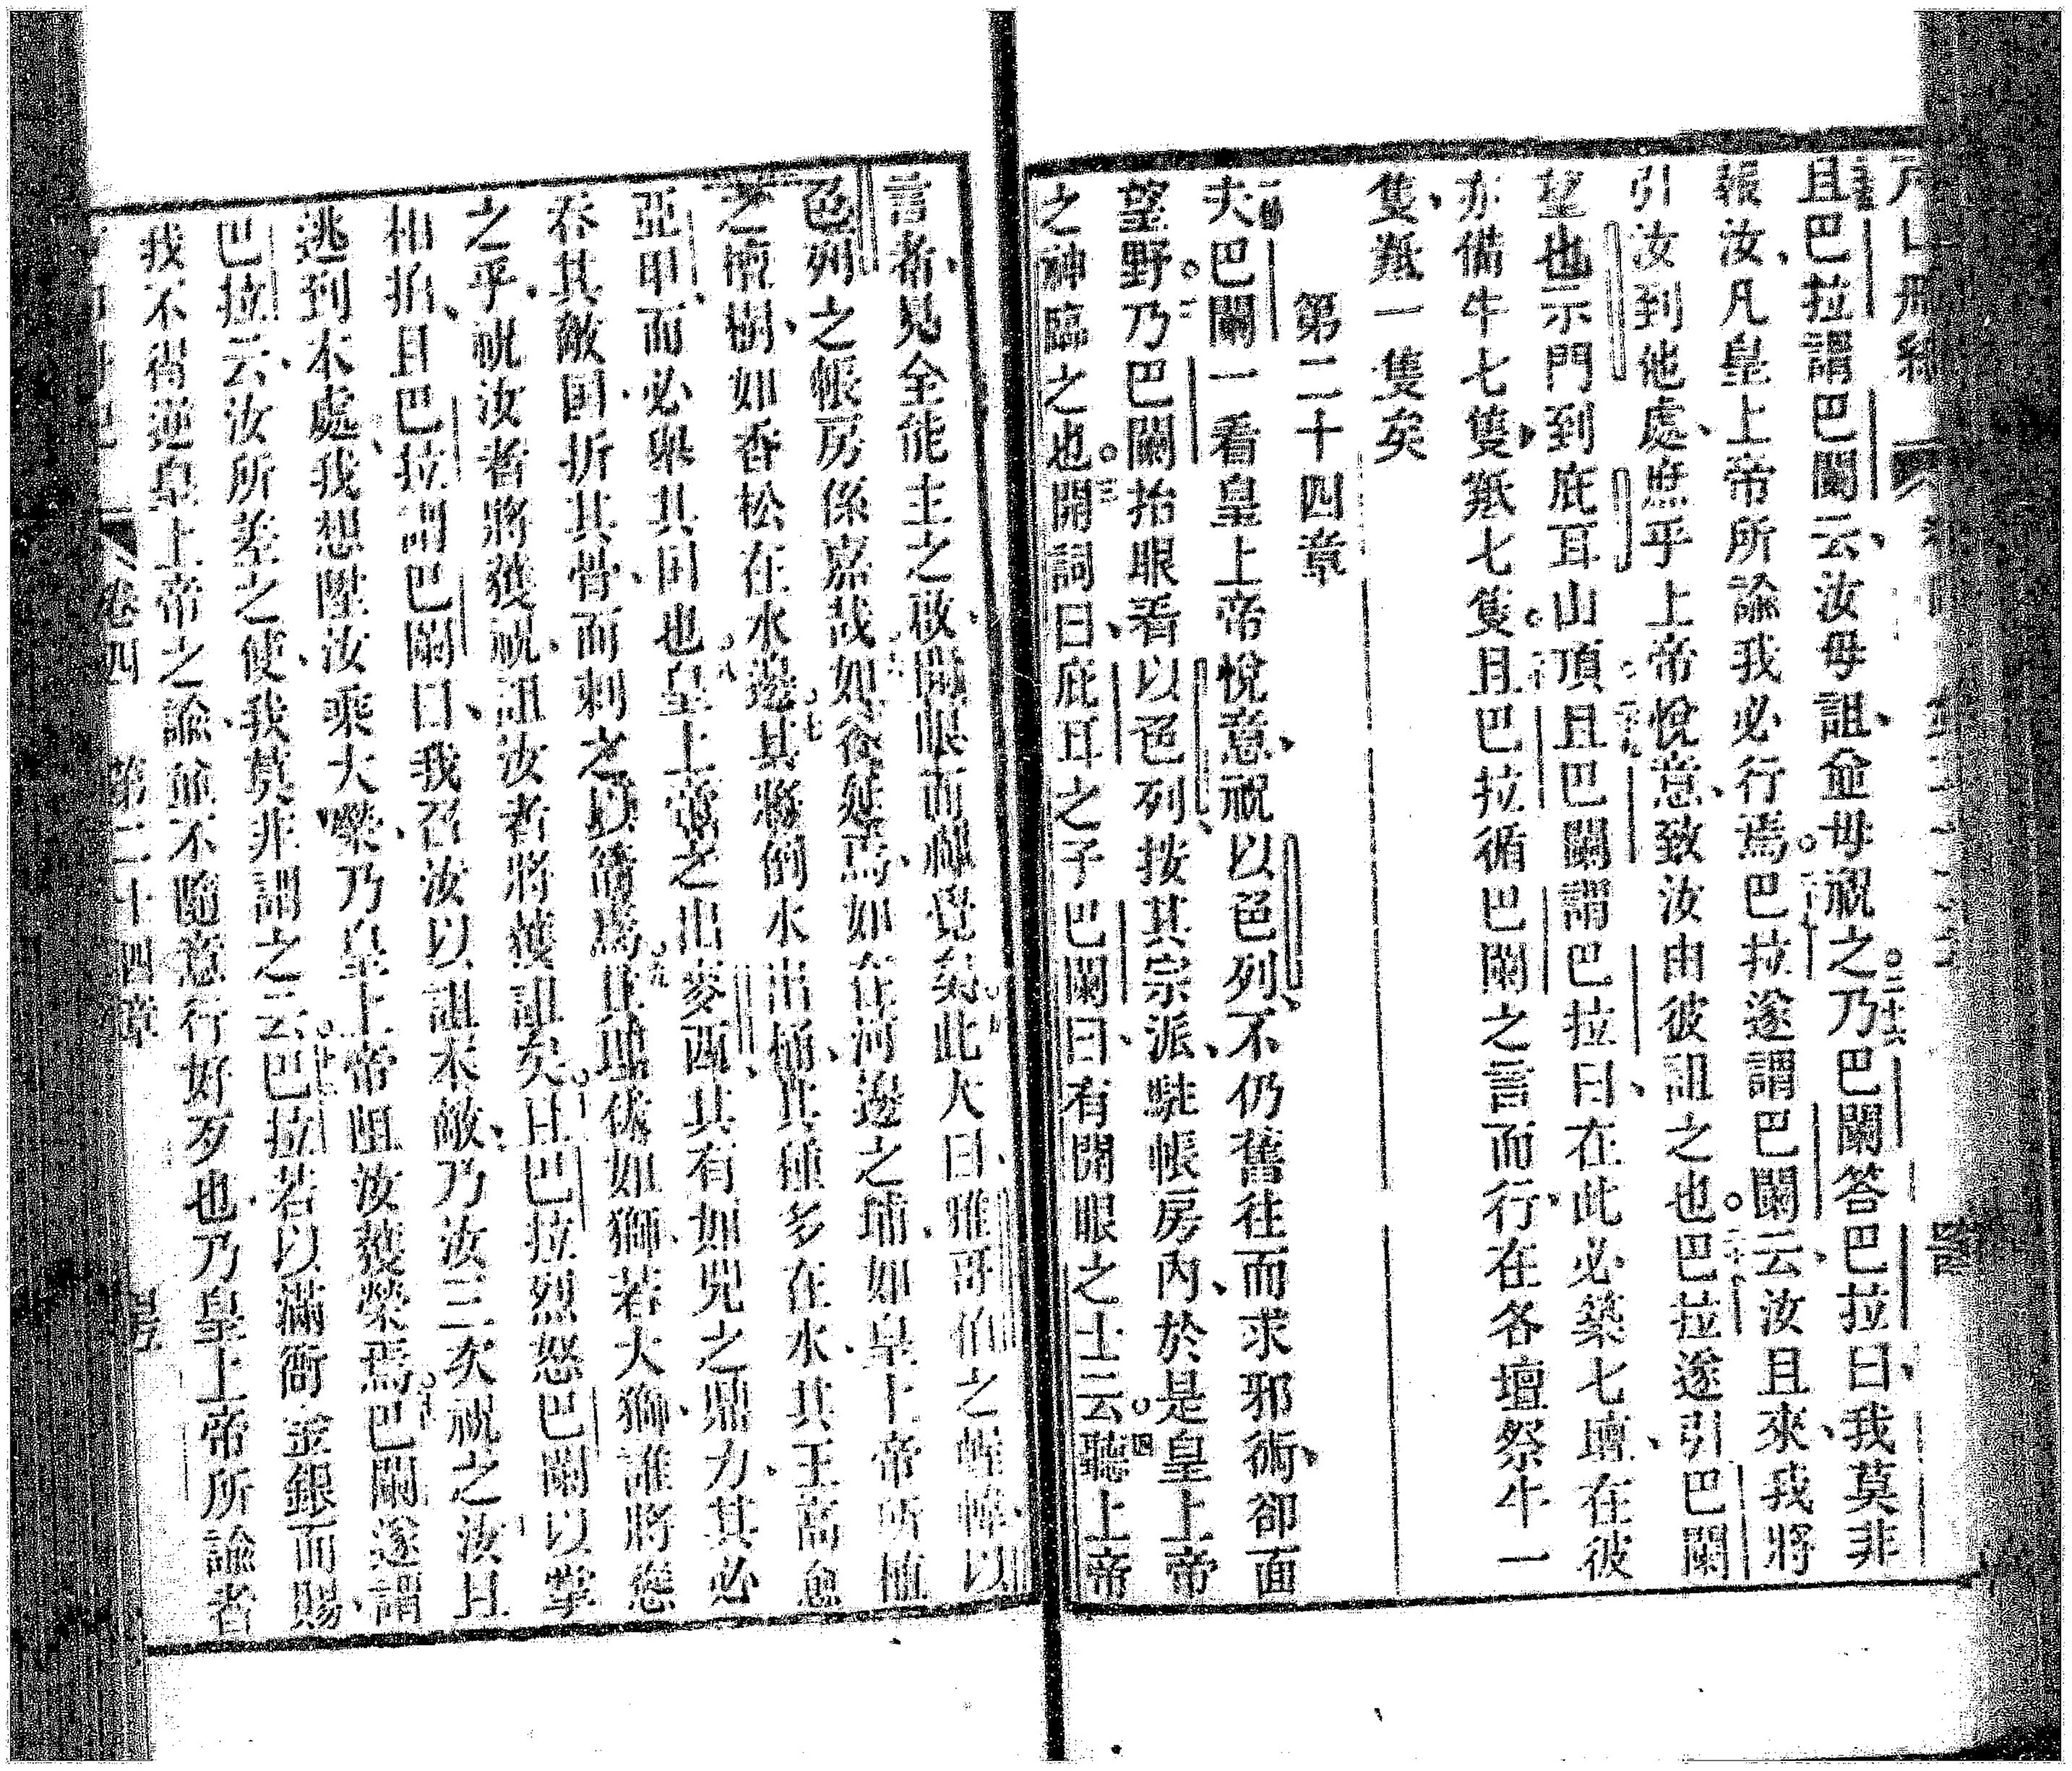 且巴拉謂巴闌云、汝毋詛、僉毋祝之。二十六乃巴闌答巴拉曰、我莫非
報汝、凡皇上帝所諭我必行焉。巴拉遂謂巴闌云、汝且來、我將
引汝到他處、庶乎上帝悅意、致汝由彼詛之也。巴拉遂引巴闌
望也示門到庇耳山頂。且巴闌謂巴拉曰、在此必築七壇、在彼
亦備牛七隻、羝七隻。且巴拉循巴闌之言而行、在各壇祭牛一
隻、羝一隻矣
第二十四章
夫巴闌一看皇上帝悅意、祝以色列、不仍舊往而求邪術、卻面
望野。二乃巴闌抬眼看以色列、按其宗派、駐帳房內、於是皇上帝
之神臨之也。三開詞曰、庇耳之子巴闌曰、有開眼之士云。四聽上帝
言者、見全能主之啟、開眼而神覺矣。此人曰、雅哥伯之幄帷、以
色列之帳房係嘉哉。如谷延焉、如在河邊之埔、如皇上帝所植
之檀樹、如香松在水邊。七其將倒水出桶、其種多在水、其王高愈
亞甲、而必舉其囯也。八皇上帝之出麥西、其有如兕之鼎力、其必
吞其敵囯、折其骨、而刺之以箭焉。九其踞伏如獅、若大獅、誰將惹
之乎、祝汝者將獲祝、詛汝者將獲詛矣。且巴拉烈怒巴闌、以掌
相拍、且巴拉謂巴闌曰、我召汝以詛本敵、乃汝三次祝之、汝且
逃到本處、我想陞汝乘大榮、乃皇上帝阻汝獲榮焉。巴闌遂謂
巴拉云、汝所差之使、我莫非謂之云。巴拉若以滿衙金銀而賜、
我不得逆皇上帝之諭、並不隨意行好歹也、乃皇上帝所諭者
卷四 第二十四章